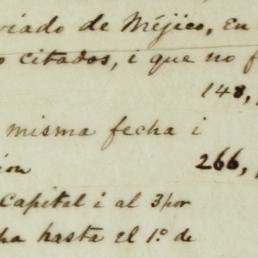 viado de Méjico, en
o citados, i que no f
148,
misma fecha i
ion 266,
Capital i al 3 por
ha hasta el 1.º de